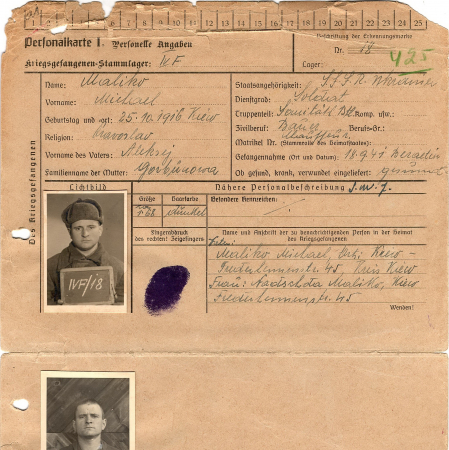 1 2 3 4 5 6 7 8 9 10 11 12 13 14 15 16 17 18 19 20 21 22 23 24 25
Personalkarte I: Personelle Angaben
Beschriftung der Erkennungsmarke
Nr. 18
Kriegsgefangenen-Stammlager: IVF
Lager:
425
Des Kriegsgefangenen
Name: Maliko
Vorname: Michael
Geburtstag und -ort: 25.10.1916 Kiew
Religion: Pravoslav
Vorname des Vaters: Aleksej
Familienname der Mutter: Gorbunowa
Staatsangehörigkeit: SSSR. Ukrainer
Dienstgrad: Soldat
Truppenteil: Sanität Btl. Komp. usw.:
Zivilberuf: Bauer Berufs-Gr.:
Matrikel Nr. (Stammrolle des Heimatstaates):
Gefangennahme (Ort und Datum): 18.9.41
Ob gesund, krank, verwundet eingeliefert: gesund
Lichtbild
Nähere Personalbeschreibung
Größe
Haarfarbe
Besondere Kennzeichen:
1.68
dunkel
Fingerabdruck
des rechten! Zeigefingers
Name und Anschrift der zu benachrichtigenden Person in der Heimat
des Kriegsgefangenen
Maliko Michael, Ort: Kiew -
45, Kreis Kiew
Frau: Nadeschda Maliko, Kiew
45
Wenden!
IVF/18